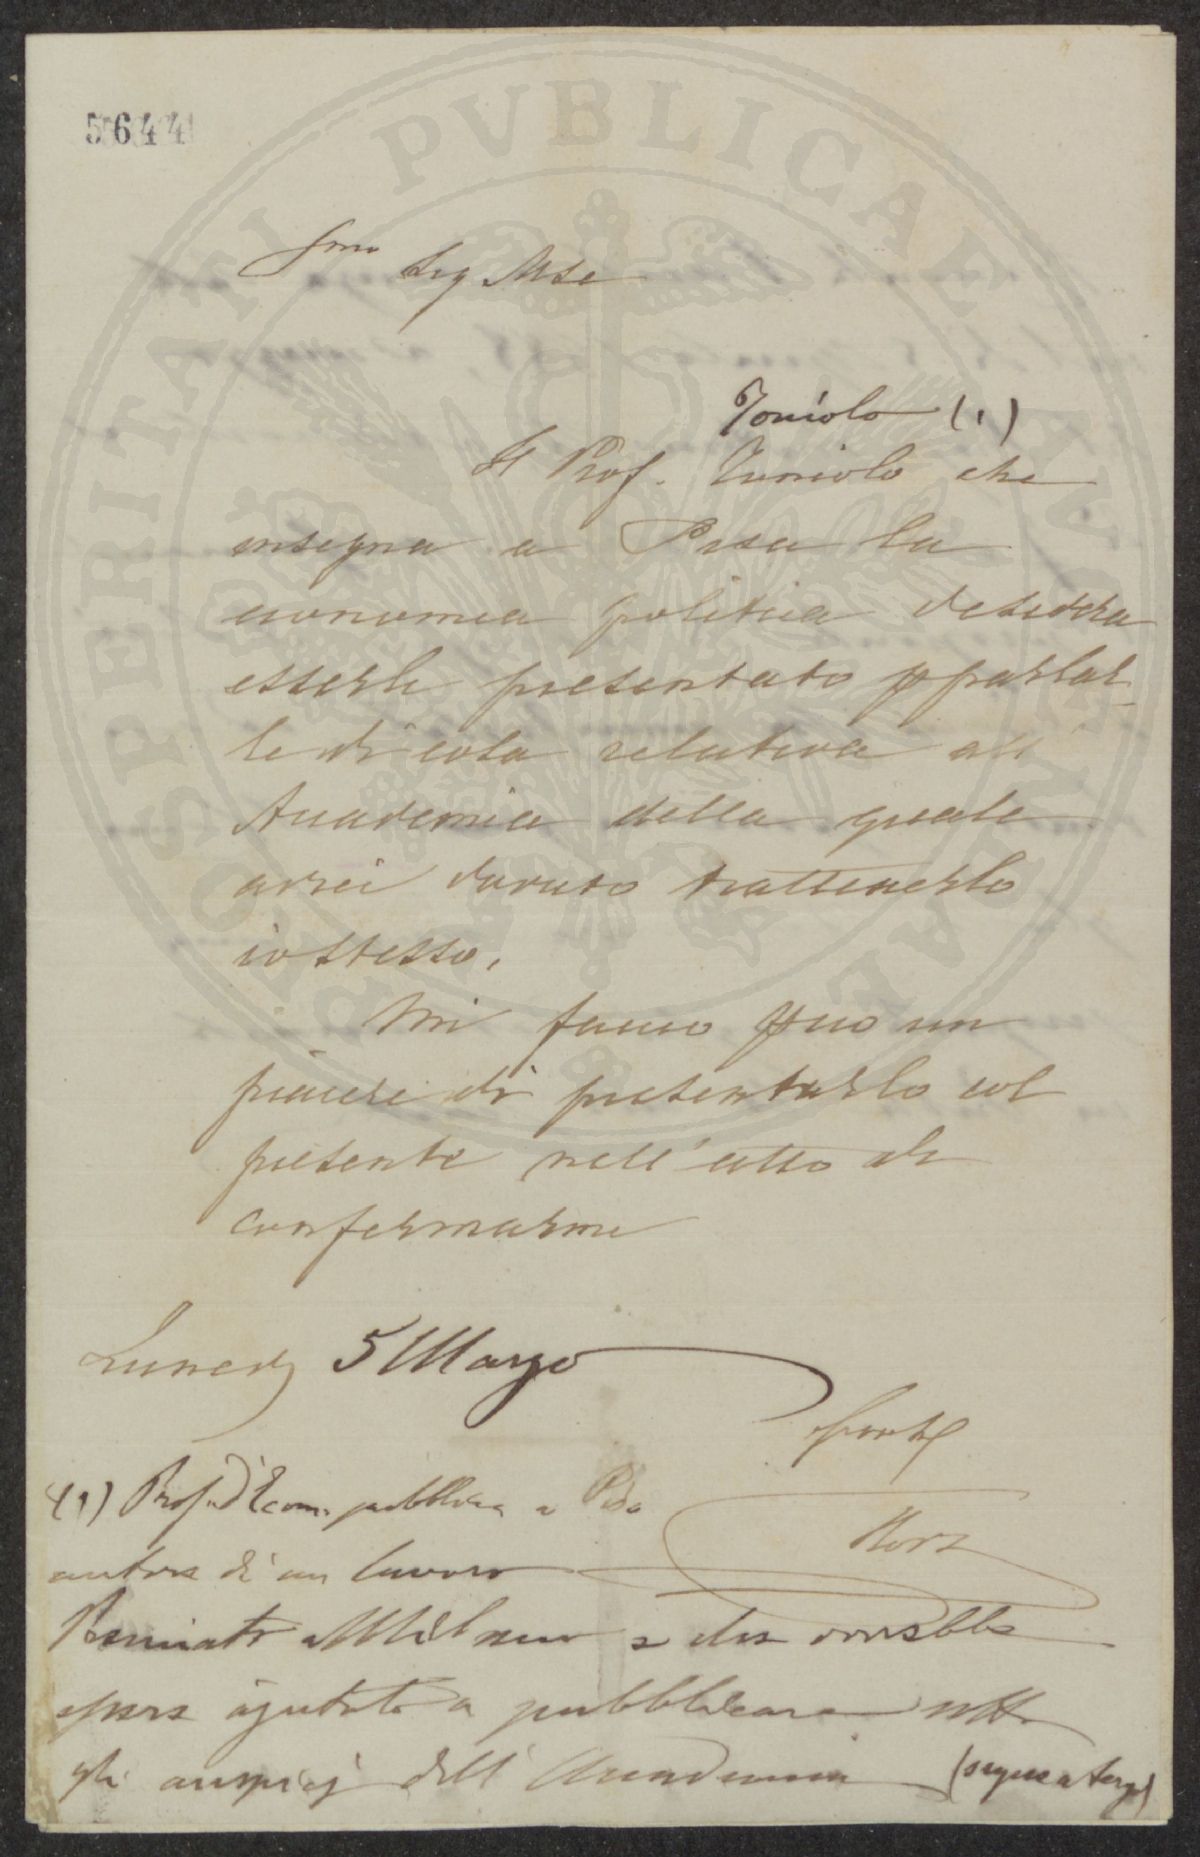 5644
PROSPERITATI PVBLICAE AVGENDAE
Sig Mse
Toniolo (1)
Il Prof. Tuniolo che
insegna a Pisa la
economia politica desidera
esserle presentato p parlar-
le di cosa relativa all'
Accademia della quale
avrei dovuto trattenerlo
io stesso.
Mi faccio pno un
piacere di presentarlo col
presente nell'atto di
confermarmi
Lunedì 5 Marzo
(1) Prof. d'Econ. pubblica a Pisa
autore di un lavoro
Premiato a Milano e che vorrebbe
essere ajutato a pubblicare sotto
gli auspicj dell'Accademia (segue a tergo)